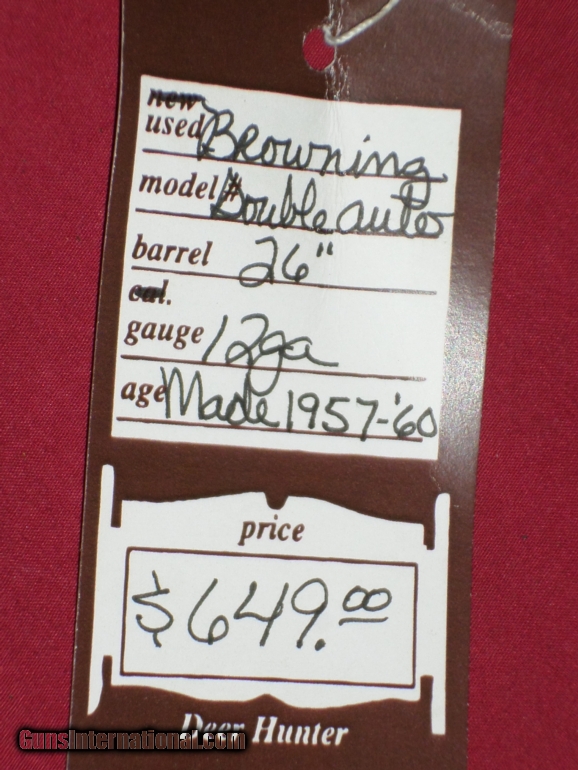 new
used Browning
model# Double auto
barrel 26"
cal.
gauge 12ga
age Made 1957-'60
price
$649.00
Deer Hunter
GunsInternational.com